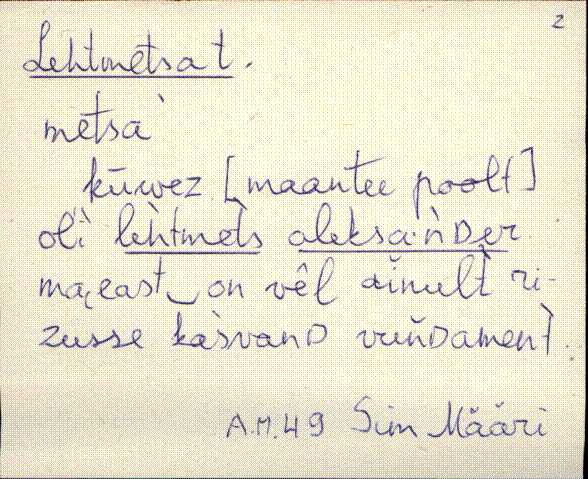 2
Lehtmetsa t.
mētsā`
kūwez [maantee poolt]
oli lehtmèts aleksa·nDer
majeast on vêl ainult ri-
zusse kàsvanD vuňDament.
A.M.49 Sim Määri